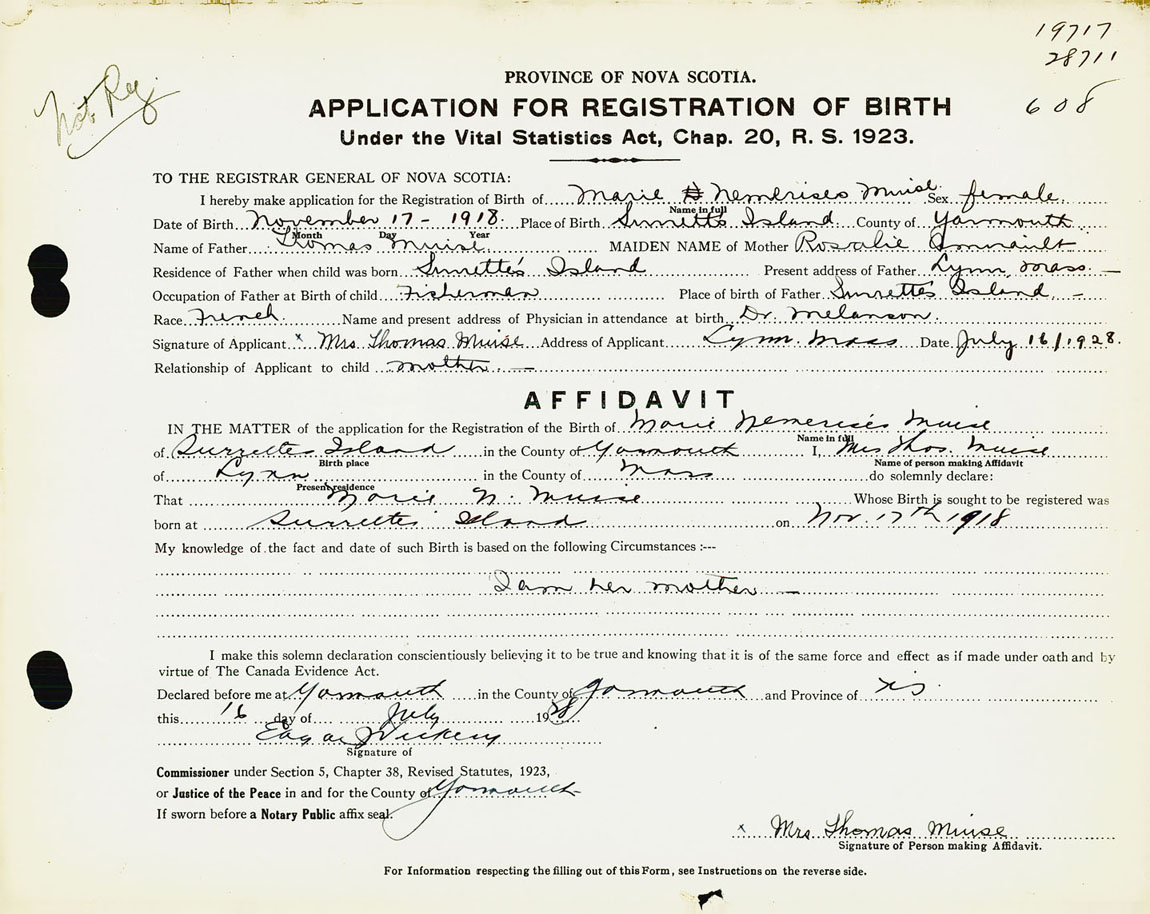 19717
28711
Not Reg
PROVINCE OF NOVA SCOTIA.
APPLICATION FOR REGISTRATION OF BIRTH
608
Under the Vital Statistics Act, Chap. 20, R. S. 1923.
TO THE REGISTRAR GENERAL OF NOVA SCOTIA:
I hereby make application for the Registration of Birth of Marie Nemerises Muise. Sex female
Name in full
Date of Birth November 17 - 1918. Place of Birth Surrette's Island. County of Yarmouth
Month Day Year
Name of Father Thomas Muise MAIDEN NAME of Mother Rosalie
Residence of Father when child was born Surrette's Island Present address of Father Lynn, Mass. —
Occupation of Father at Birth of child Fisherman Place of birth of Father Surrette's Island, -
Race French. Name and present address of Physician in attendance at birth Dr. Melanson.
Signature of Applicant x Mrs Thomas Muise Address of Applicant Lynn. Mass Date July 16/1928.
Relationship of Applicant to child mother. —
AFFIDAVIT
IN THE MATTER of the application for the Registration of the Birth of Marie Nemerises Muise
Name in full
of Surrettes Island in the County of Yarmouth I, Mrs Thos. Muise
Birth place Name of person making Affidavit
of Lynn in the County of Mass do solemnly declare:
Present residence
That Marie N. Muise Whose Birth is sought to be registered was
born at Surrettes Island on Nov. 17th 1918
My knowledge of the fact and date of such Birth is based on the following Circumstances :---
I am her mother —
I make this solemn declaration conscientiously believing it to be true and knowing that it is of the same force and effect as if made under oath and by
virtue of The Canada Evidence Act.
Declared before me at Yarmouth in the County of Yarmouth and Province of NS
this 16 day of July 1928
Edgar J Vickery
Signature of
Commissioner under Section 5, Chapter 38, Revised Statutes, 1923,
or Justice of the Peace in and for the County of Yarmouth
If sworn before a Notary Public affix seal.
x Mrs Thomas Muise
Signature of Person making Affidavit.
For Information respecting the filling out of this Form, see Instructions on the reverse side.